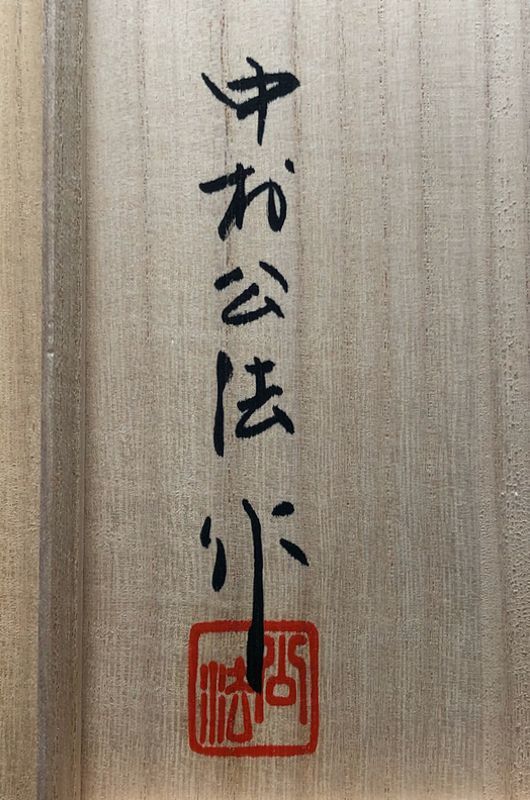 中村公法作
公法